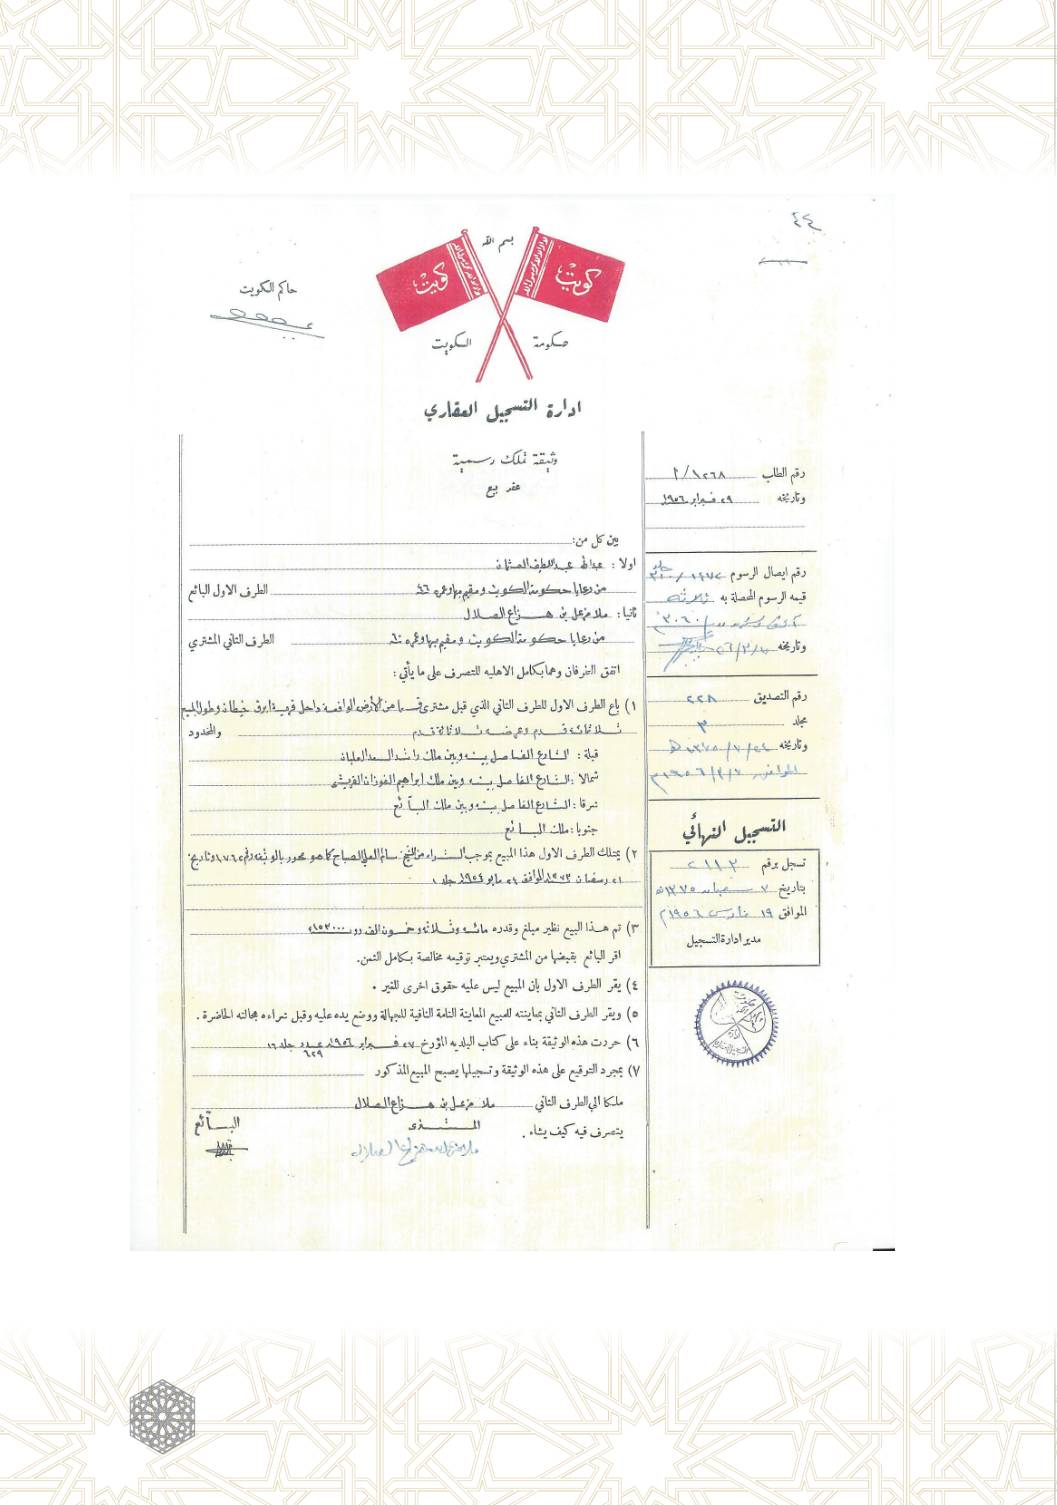 ٤٤
بسم الله
كويت
كويت
حاكم الكويت
حكومة الكويت
ادارة التسجيل العقاري
وثيقة تملك رسمية
عقد بيع
رقم الطلب ١٢٦٨/٢
وتاريخه ٢٩ فبراير ١٩٥٦
رقم ايصال الرسوم
قيمه الرسوم المحصلة به ثلاثة
وتاريخه
رقم التصديق ٢٢٨
مجلد ٣
وتاريخه
التسجيل النهائي
تسجل برقم ٢١١٢
بتاريخ ٧ شعبان ١٣٧٥ه
الموافق ١٩ مارس ١٩٥٦م
مدير ادارة التسجيل
بين كل من:
اولا : عبدالله عبداللطيف العثمان
من رعايا حكومة الكويت ومقيم بها وعمره الطرف الاول البائع
ثانيا : ملا مزعل بن هزاع الصلال
من رعايا حكومة الكويت ومقيم بها وعمره الطرف الثاني المشتري
اتفق الطرفان وهما بكامل الاهليه للتصرف على ما يأتي :
١) باع الطرف الاول للطرف الثاني الذي قبل مشترى قسما من الأرض الواقعة داخل قرية ابرق خيطان وطول المبيع
ثلاثمائة قدم وعرضه ثلاثمائة قدم والمحدود
قبلة : الشارع الفاصل بينه وبين ملك راشد السعد العلبان
شمالا : الشارع الفاصل بينه وبين ملك ابراهيم الفوزان القريشي
شرقا : الشارع الفاصل بينه وبين ملك البائع
جنوبا : ملك البائع
٢) يمتلك الطرف الاول هذا المبيع بموجب الشراء من الشيخ سالم العلي الصباح كما هو محرر بالوثيقه رقم ١٧٦٢ وتاريخ
٢١ رمضان ١٣٧٣ الموافق ٢٤ مايو ١٩٥٤ جلد ١
٣) تم هذا البيع نظير مبلغ وقدره مائة وثلاثة وخمسون الف
اقر البائع بقبضها من المشتري ويعتبر توقيعه مخالصة بكامل الثمن.
٤) يقر الطرف الاول بان المبيع ليس عليه حقوق اخرى للغير .
٥) ويقر الطرف الثاني بمعاينته للمبيع المعاينة التامة النافية للجهالة ووضع يده عليه وقبل شراءه بحالته الحاضرة .
٦) حررت هذه الوثيقة بناء على كتاب البلديه المؤرخ ٢٧ فبراير ١٩٥٦ عدد ٦٢٩ جلد ١٦
٧) بمجرد التوقيع على هذه الوثيقة وتسجيلها يصبح المبيع المذكور
ملكا الى الطرف الثاني ملا مزعل بن هزاع الصلال
يتصرف فيه كيف يشاء .
المشتري
البائع